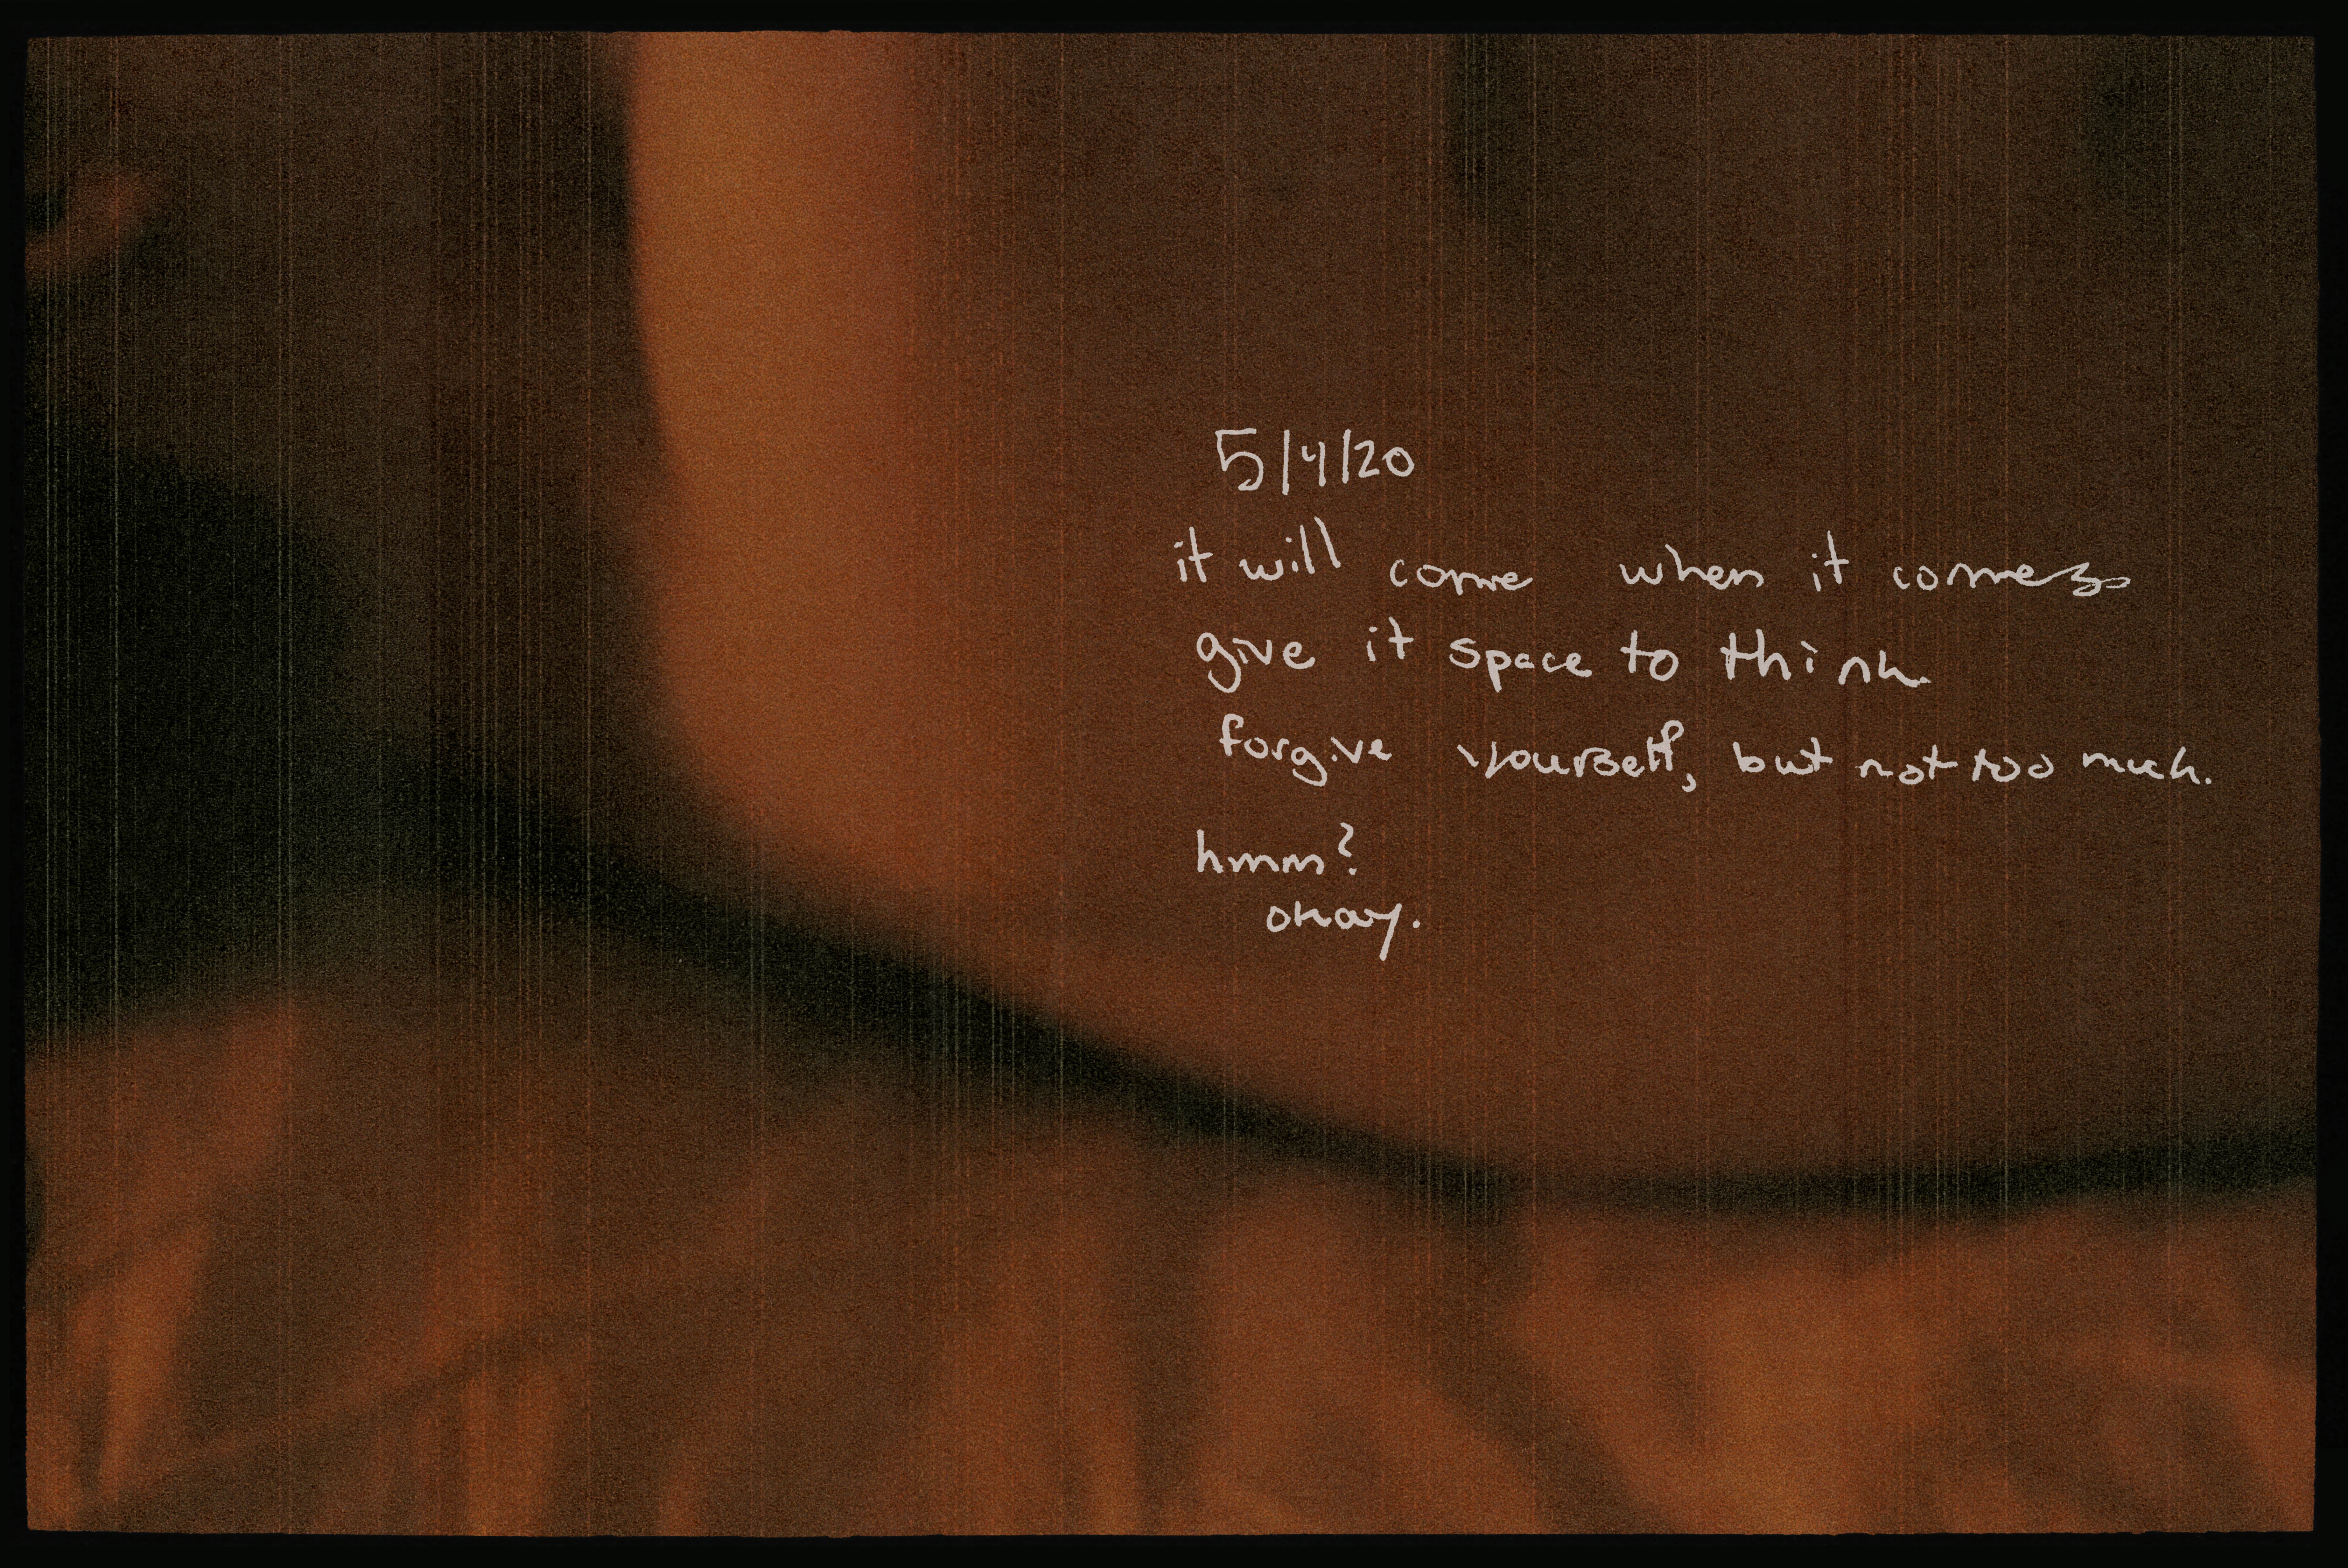 5/4/20
it will come when it comes
give it space to think.
forgive yourself, but not too much.
hmm?
okay.